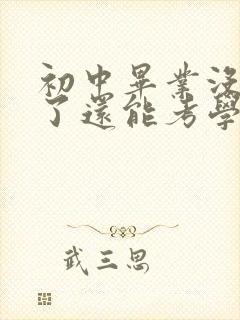 初中畢業沒
了還能考學
武三思